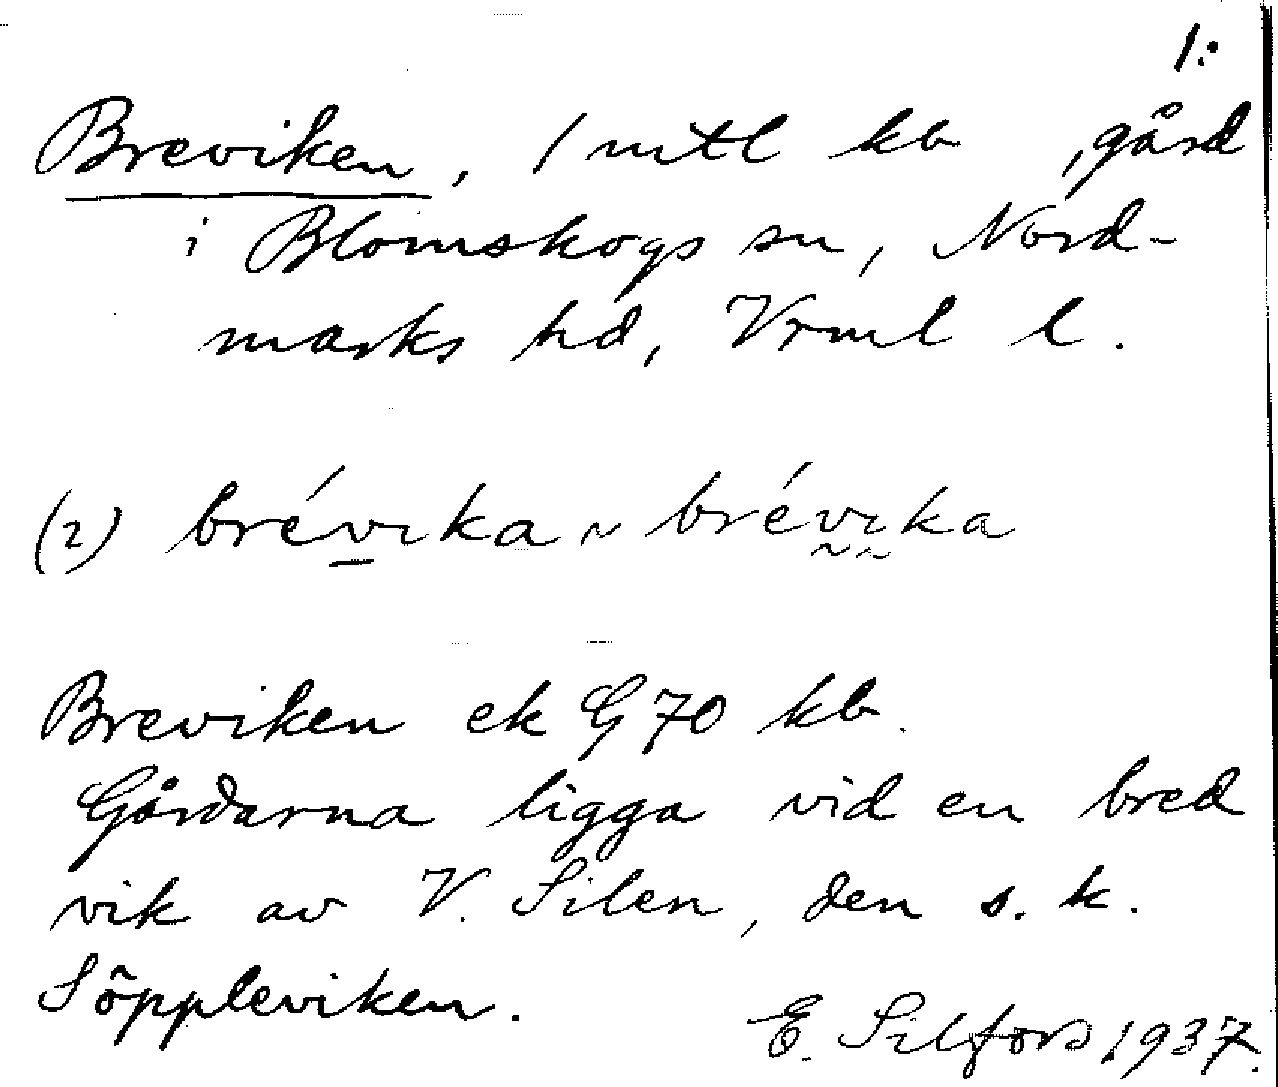 1:
Breviken, 1 mtl kb, gård
i Blomskogs sn, Nord-
marks hd, Vrml l.
(2) brévıka ~ brévıka
Breviken ek G 70 kb.
Gårdarna ligga vid en bred
vik av V. Silen, den s. k.
Söppleviken.
E. Silfors 1937.